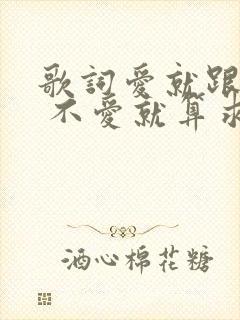 歌詞愛就跟
不愛就算求
酒心棉花糖